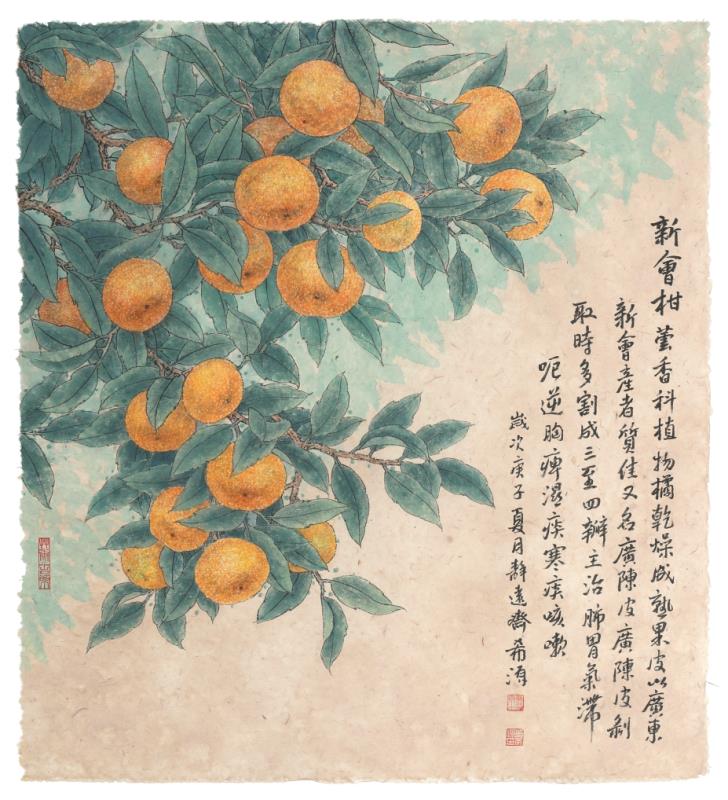 新會柑 蕓香科植物橘乾燥成熟果皮以廣東
新會產者質佳又名廣陳皮廣陳皮剝
取時多割成三至四瓣主治脾胃氣滯
呃逆胸痺濕痰寒痰咳嗽
歲次庚子夏月靜遠齋希